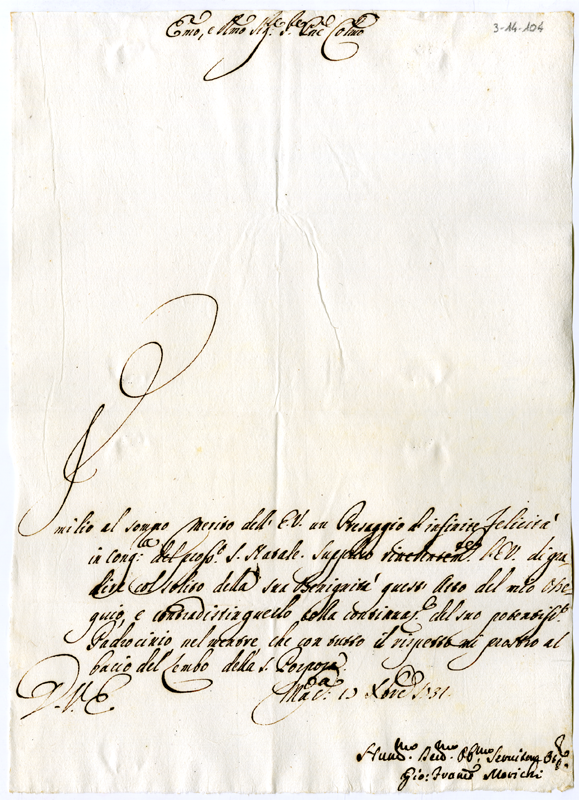 3-14-104
Emo, e Rmo Sig.re Sig.re Pne Colmo
Umilio al sommo merito dell' E.V. un Presaggio d'infinite felicità
in cong.a del pross.o S. Natale. Supplico l'E.V. di gra
dire col solito della sua Benignità quest' Atto del mio Osse
quio, e contradistinguerlo colla continuaz.e del suo potentiss.o
Padrocinio nel mentre, che con tutto il rispetto mi prostro al
bacio del Lembo della S. Porpora.
D. V. E.
13 Xbre
Hum.mo Serv.re
Gio: Franc.o Marichi